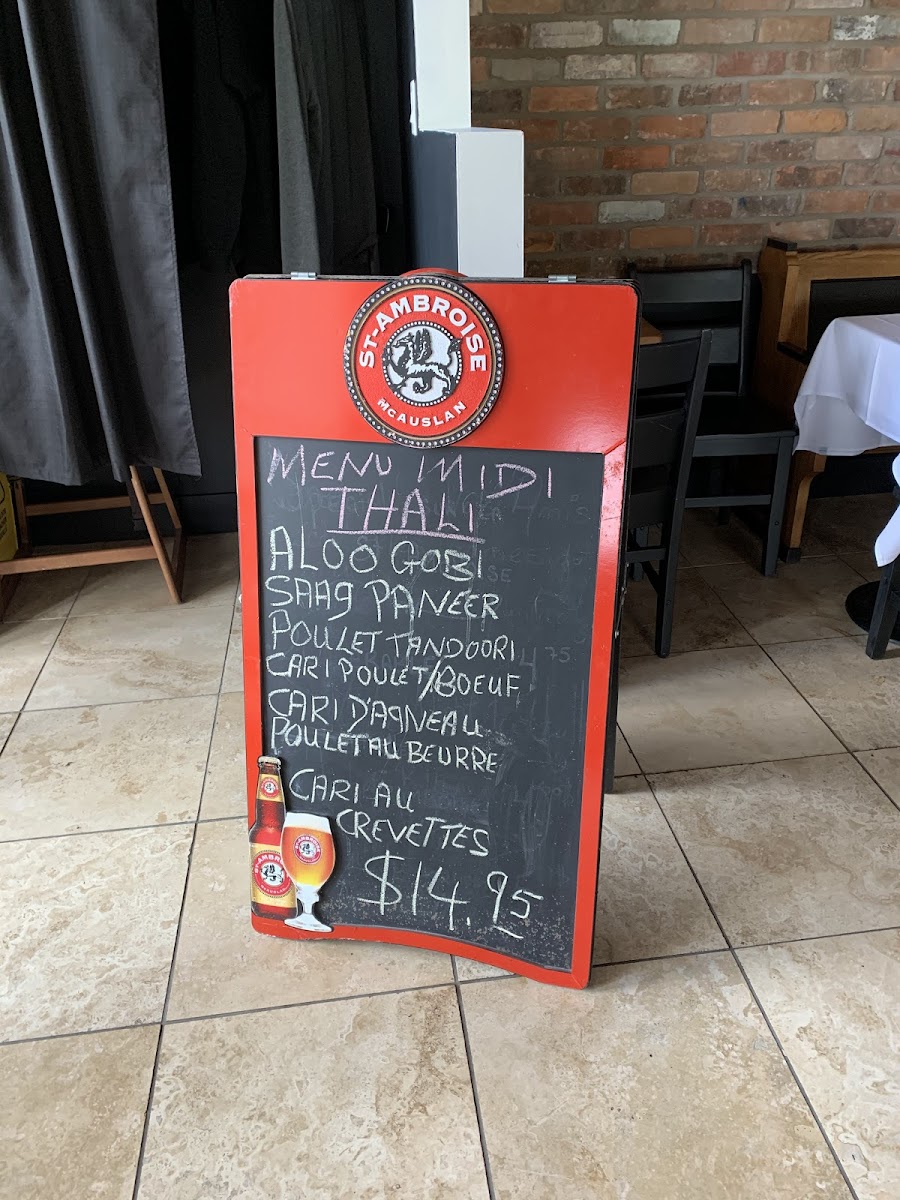 ST-AMBROISE
McAUSLAN
MENU MIDI
THALI
ALOO GOBI
SAAG PANEER
POULET TANDOORI
CARI POULET/BOEUF
CARI D'AGNEAU
POULET AU BEURRE
CARI AU
CREVETTES
$14.95
ST-AMBROISE
McAUSLAN
ST-AMBROISE